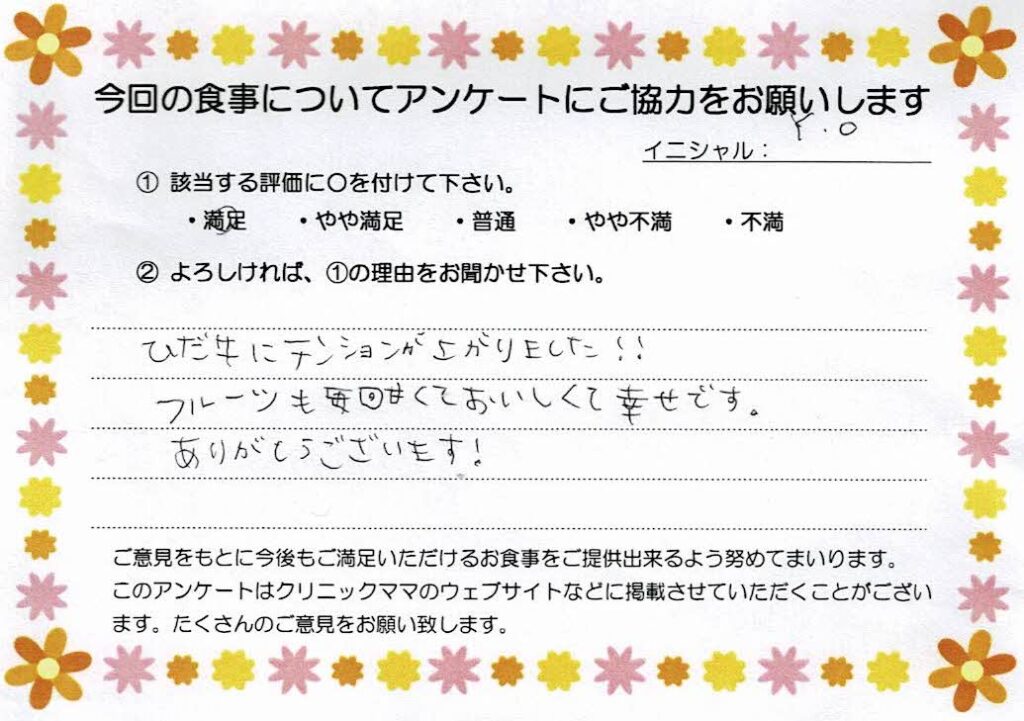 今回の食事についてアンケートにご協力をお願いします
イニシャル： Y.O
① 該当する評価に〇を付けて下さい。
・満足 ・やや満足 ・普通 ・やや不満 ・不満
② よろしければ、①の理由をお聞かせ下さい。
ひだ牛にテンションが上がりました！！
フルーツも毎回甘くておいしくて幸せです。
ありがとうございます！
ご意見をもとに今後もご満足いただけるお食事をご提供出来るよう努めてまいります。
このアンケートはクリニックママのウェブサイトなどに掲載させていただくことがござい
ます。たくさんのご意見をお願い致します。